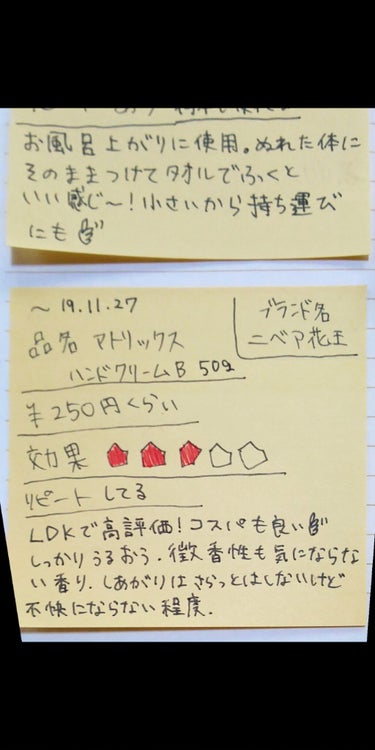 お風呂上がりに使用。ぬれた体に
そのままつけてタオルでふくと
いい感じ～!小さいから持ち運び
にも
～19.11.27
ブランド名
ニベア花王
品名 アトリックス
ハンドクリームB 50g
¥250円くらい
効果
リピートしてる
LDKで高評価!コスパも良い
しっかりうるおう.徴香性も気にならな
い香り.しあがりはさらっとはしないけど
不快にならない程度.